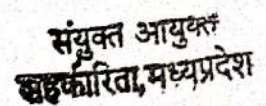 संयुक्त आयुक्त
सहकारिता, मध्यप्रदेश